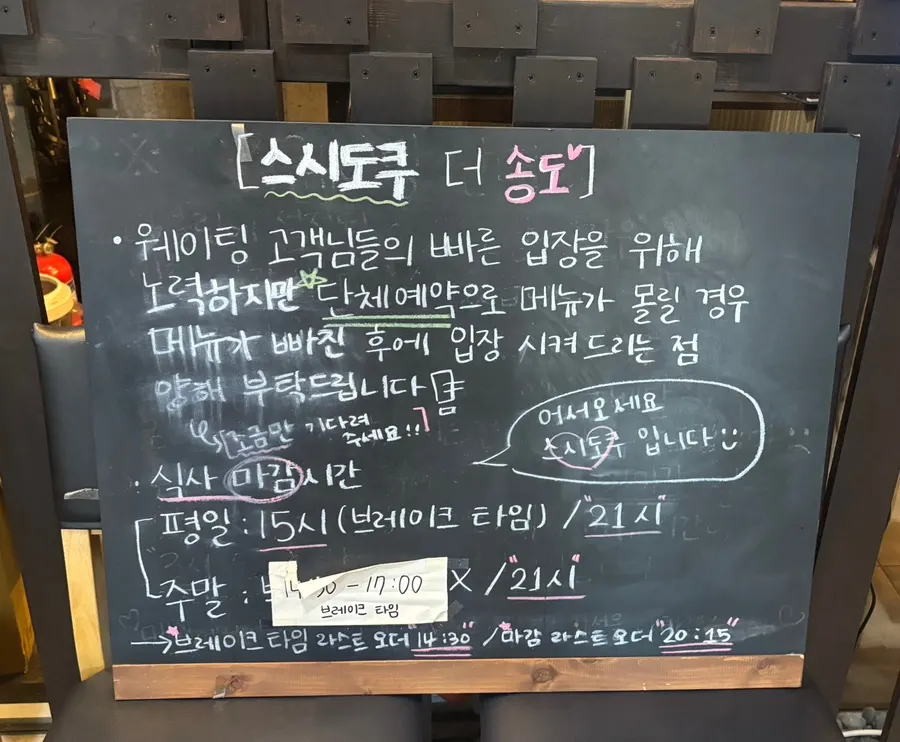 [스시도쿠 더 송도]
· 웨이팅 고객님들의 빠른 입장을 위해
노력하지만 단체예약으로 메뉴가 몰릴 경우
메뉴가 빠진 후에 입장 시켜드리는 점
양해 부탁드립니다
조금만 기다려
주세요!!
어서오세요
스시도쿠 입니다
· 식사 마감시간
평일 : 15시 (브레이크 타임) / "21시"
주말 : X / "21시"
- 17:00
브레이크 타임
→ 브레이크 타임 라스트 오더 "14:30" / 마감 라스트 오더 "20:15"